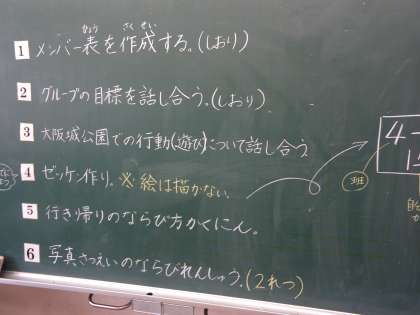 1 メンバー表を作成する。(しおり)
2 グループの目標を話し合う。(しおり)
3 大阪城公園での行動(遊び)について話し合う
4 ゼッケン作り。※絵は描かない。
5 行き帰りのならび方かくにん。
6 写真さつえいのならびれんしゅう。(2れつ)
4-
班